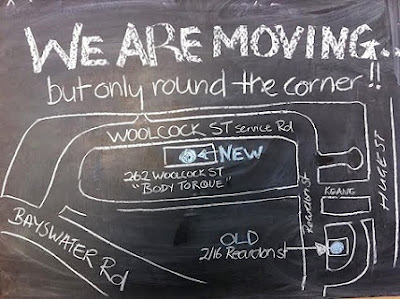 WE ARE MOVING..
but only round the corner!!
WOOLCOCK ST Service Rd
NEW
262 WOOLCOCK ST
"BODY TORQUE"
Reardon St
KEANG
HUGH ST
BAYSWATER Rd
OLD
2/16 Reardon st